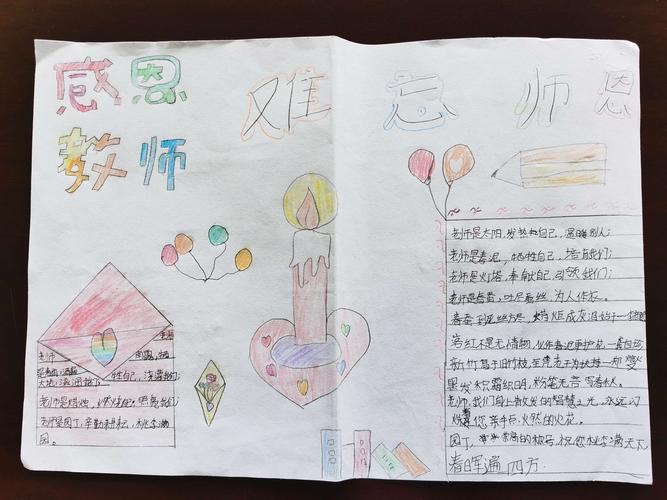 感恩
教师
难忘师恩
老师是太阳,发热 自己,温暖别人;
老师是春泥,牺牲自己,培育我们;
老师是灯塔,奉献自己,引领我们;
老师是春蚕,吐尽蚕丝,为人作衣。
春蚕到死丝方尽,蜡炬成灰泪始干一个
落红不是无情物,化作春泥更护花一
新竹高于旧竹枝,全凭老干为扶持一
黑发积霜织日月,粉笔无言写春秋。
老师,我们身上散发的智慧之光,永远闪
烁 您亲手点燃的火花。
园丁, 崇高的称号,祝您桃李满天下
春晖遍四方.
老师
牲自己,滋养我们;
大地;滋润我们
老师是蜡烛,燃烧自己照亮我们
老师是园丁,辛勤耕耘,桃李满
园。